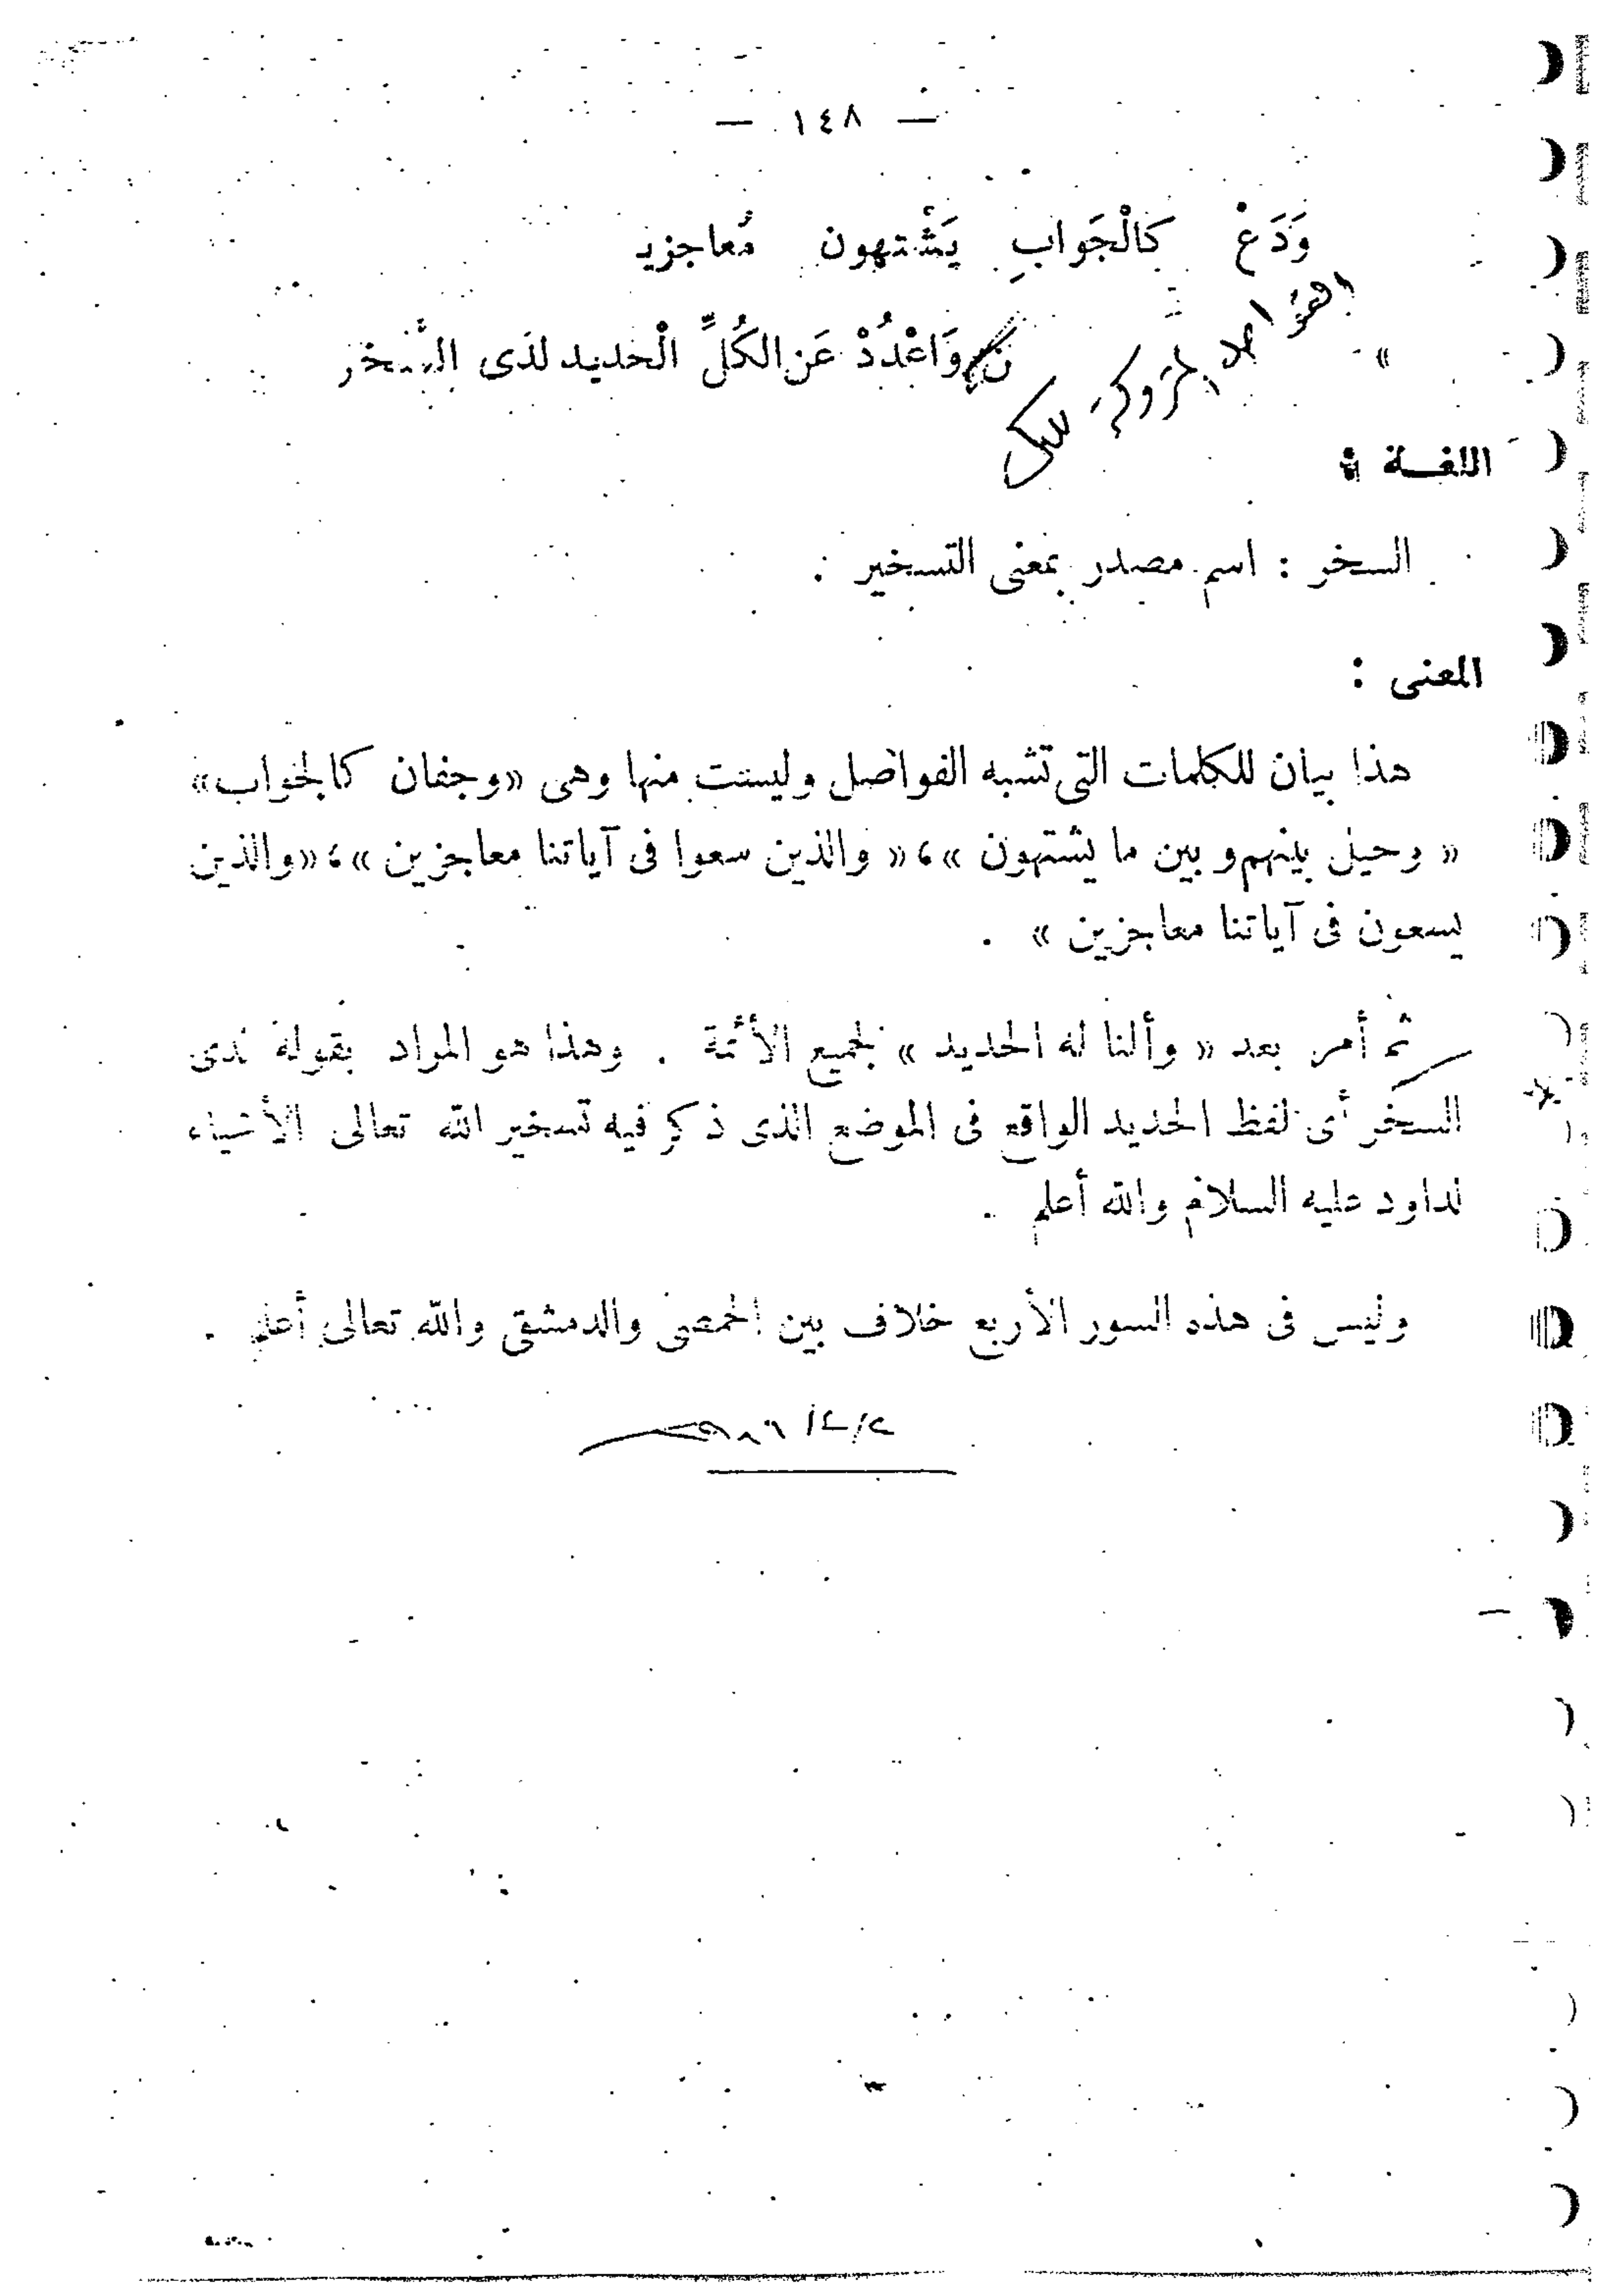 — ١٤٨ —
وَدَعْ كَالْجَوابِ يَشْتهون مُعاجزيـ
ن وَاعْدُدْ عَن الكُلِّ الْحديد لدَى السُّخر
اللغة :
السخر : اسم مصدر بمعنى التسخير .
المعنى :
هذا بيان للكلمات التى تشبه الفواصل وليست منها وهى «وجفان كالجواب»
« وحيل بينهم وبين ما يشتهون »، « والذين سعوا فى آياتنا معاجزين »، «والذين
يسعون فى آياتنا معاجزين » .
ثم أمر بعد « وألنا له الحديد » لجميع الأئمة . وهذا هو المراد بقوله لدى
السخر أى لفظ الحديد الواقع فى الموضع الذى ذكر فيه تسخير الله تعالى الأشياء
لداود عليه السلام والله أعلم .
وليس فى هذه السور الأربع خلاف بين الحمصى والدمشقى والله تعالى أعلم .